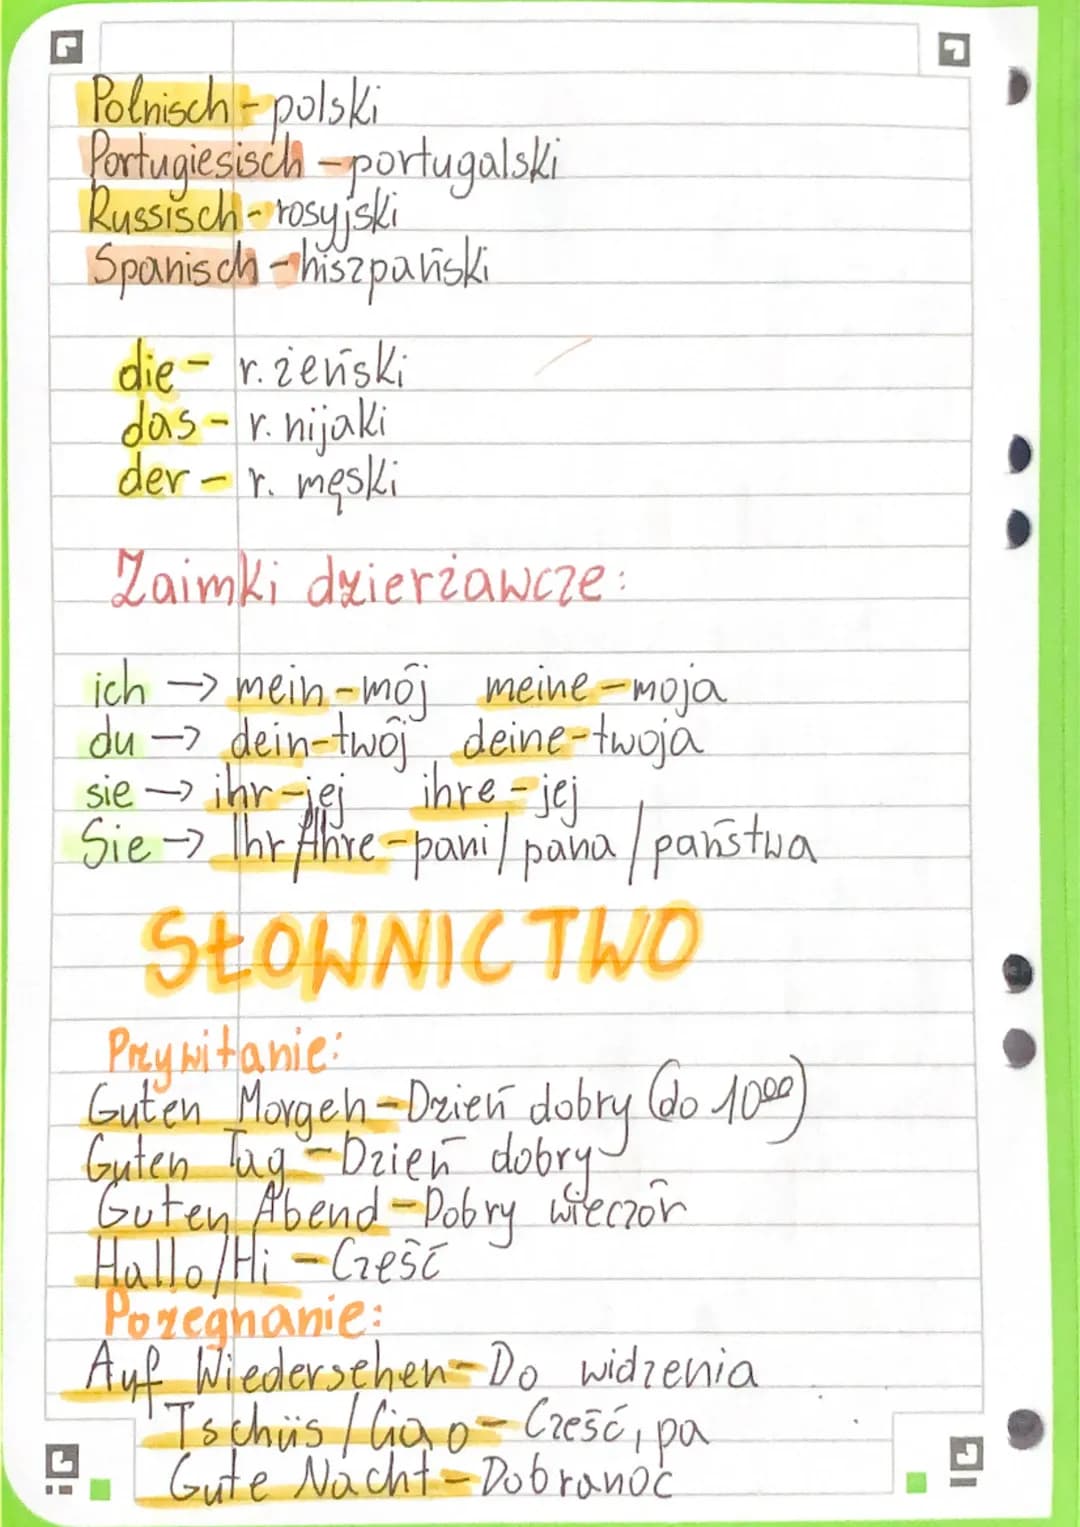 Polnisch - polski
Portugiesisch - portugalski
Russisch - rosyjski
Spanisch - hiszpański
die - r. żeński
das - r. nijaki
der - r. męski
Zaimki dzierżawcze:
ich → mein - mój meine - moja
du → dein - twój deine - twoja
sie → ihr - jej ihre - jej
Sie → Ihr/Ihre - pani/pana/państwa
SŁOWNICTWO
Przywitanie:
Guten Morgen - Dzień dobry (do 10⁰⁰)
Guten Tag - Dzień dobry
Guten Abend - Dobry wieczór
Hallo/Hi - Cześć
Pożegnanie:
Auf Wiedersehen - Do widzenia
Tschüs/Ciao - Cześć, pa
Gute Nacht - Dobranoc